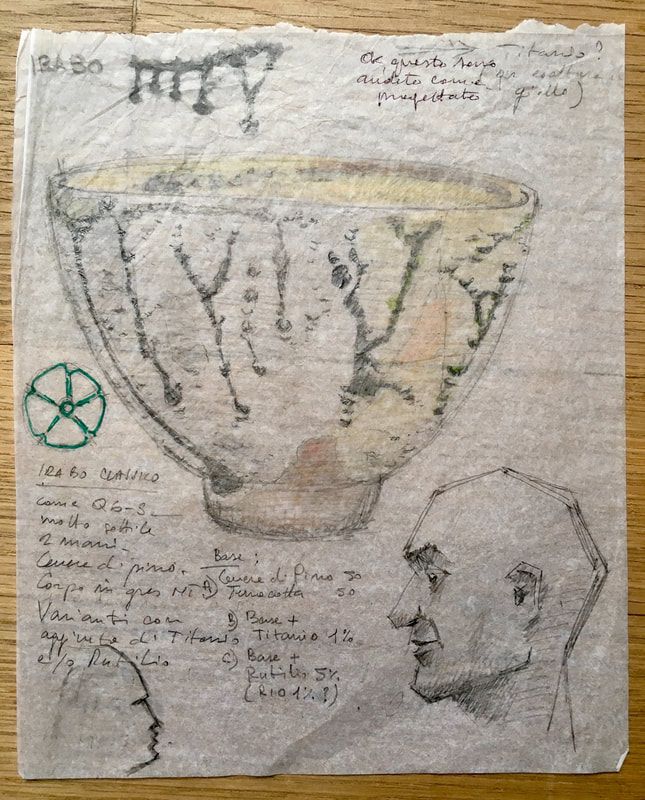 IRABO
Ok questo sono
andato come
progettato
Titanio?
IRABO CLASSICO
come Q6-S
molto sottile
2 mani
Cenere di pino.
Corpo in gres MT
Varianti con
aggiunte di Titanio
e/o Rutilio
Base:
A) Cenere di Pino 50
Terracotta 50
B) Base +
Titanio 1%
C) Base +
Rutilio 5%
(RIO 1% ?)